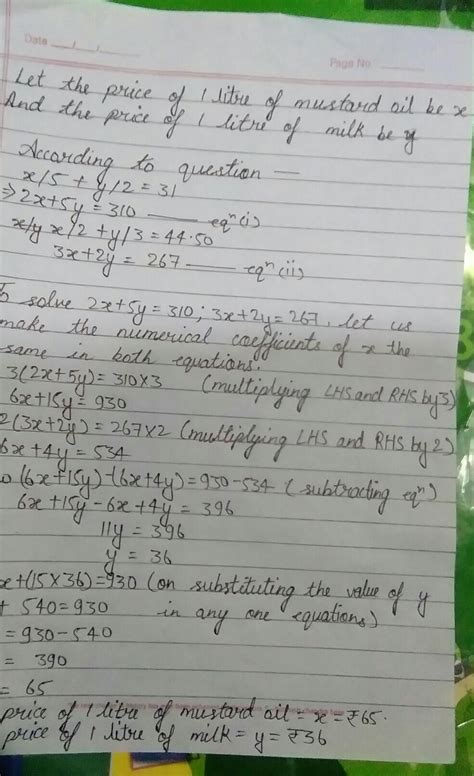 Date
Page No
Let the price of 1 litre of mustard oil be x
And the price of 1 litre of milk be y
According to question —
x/5 + y/2 = 31
⇒ 2x+5y = 310 —— eqⁿ(i)
x/y x/2 + y/3 = 44.50
3x+2y = 267 —— eqⁿ(ii)
solve 2x+5y=310; 3x+2y=267, let us
make the numerical coefficients of x the
same in both equations.
3(2x+5y) = 310×3 (multiplying LHS and RHS by 3)
6x+15y = 930
2(3x+2y) = 267×2 (multiplying LHS and RHS by 2)
6x+4y = 534
(6x+15y)-(6x+4y)=930-534 (subtracting eqⁿ)
6x+15y-6x+4y = 396
11y = 396
y = 36
x+(15×36)=930 (on substituting the value of y
+ 540=930 in any one equations)
= 930-540
= 390
= 65
price of 1 litre of mustard oil = x = ₹65.
price of 1 litre of milk = y = ₹36